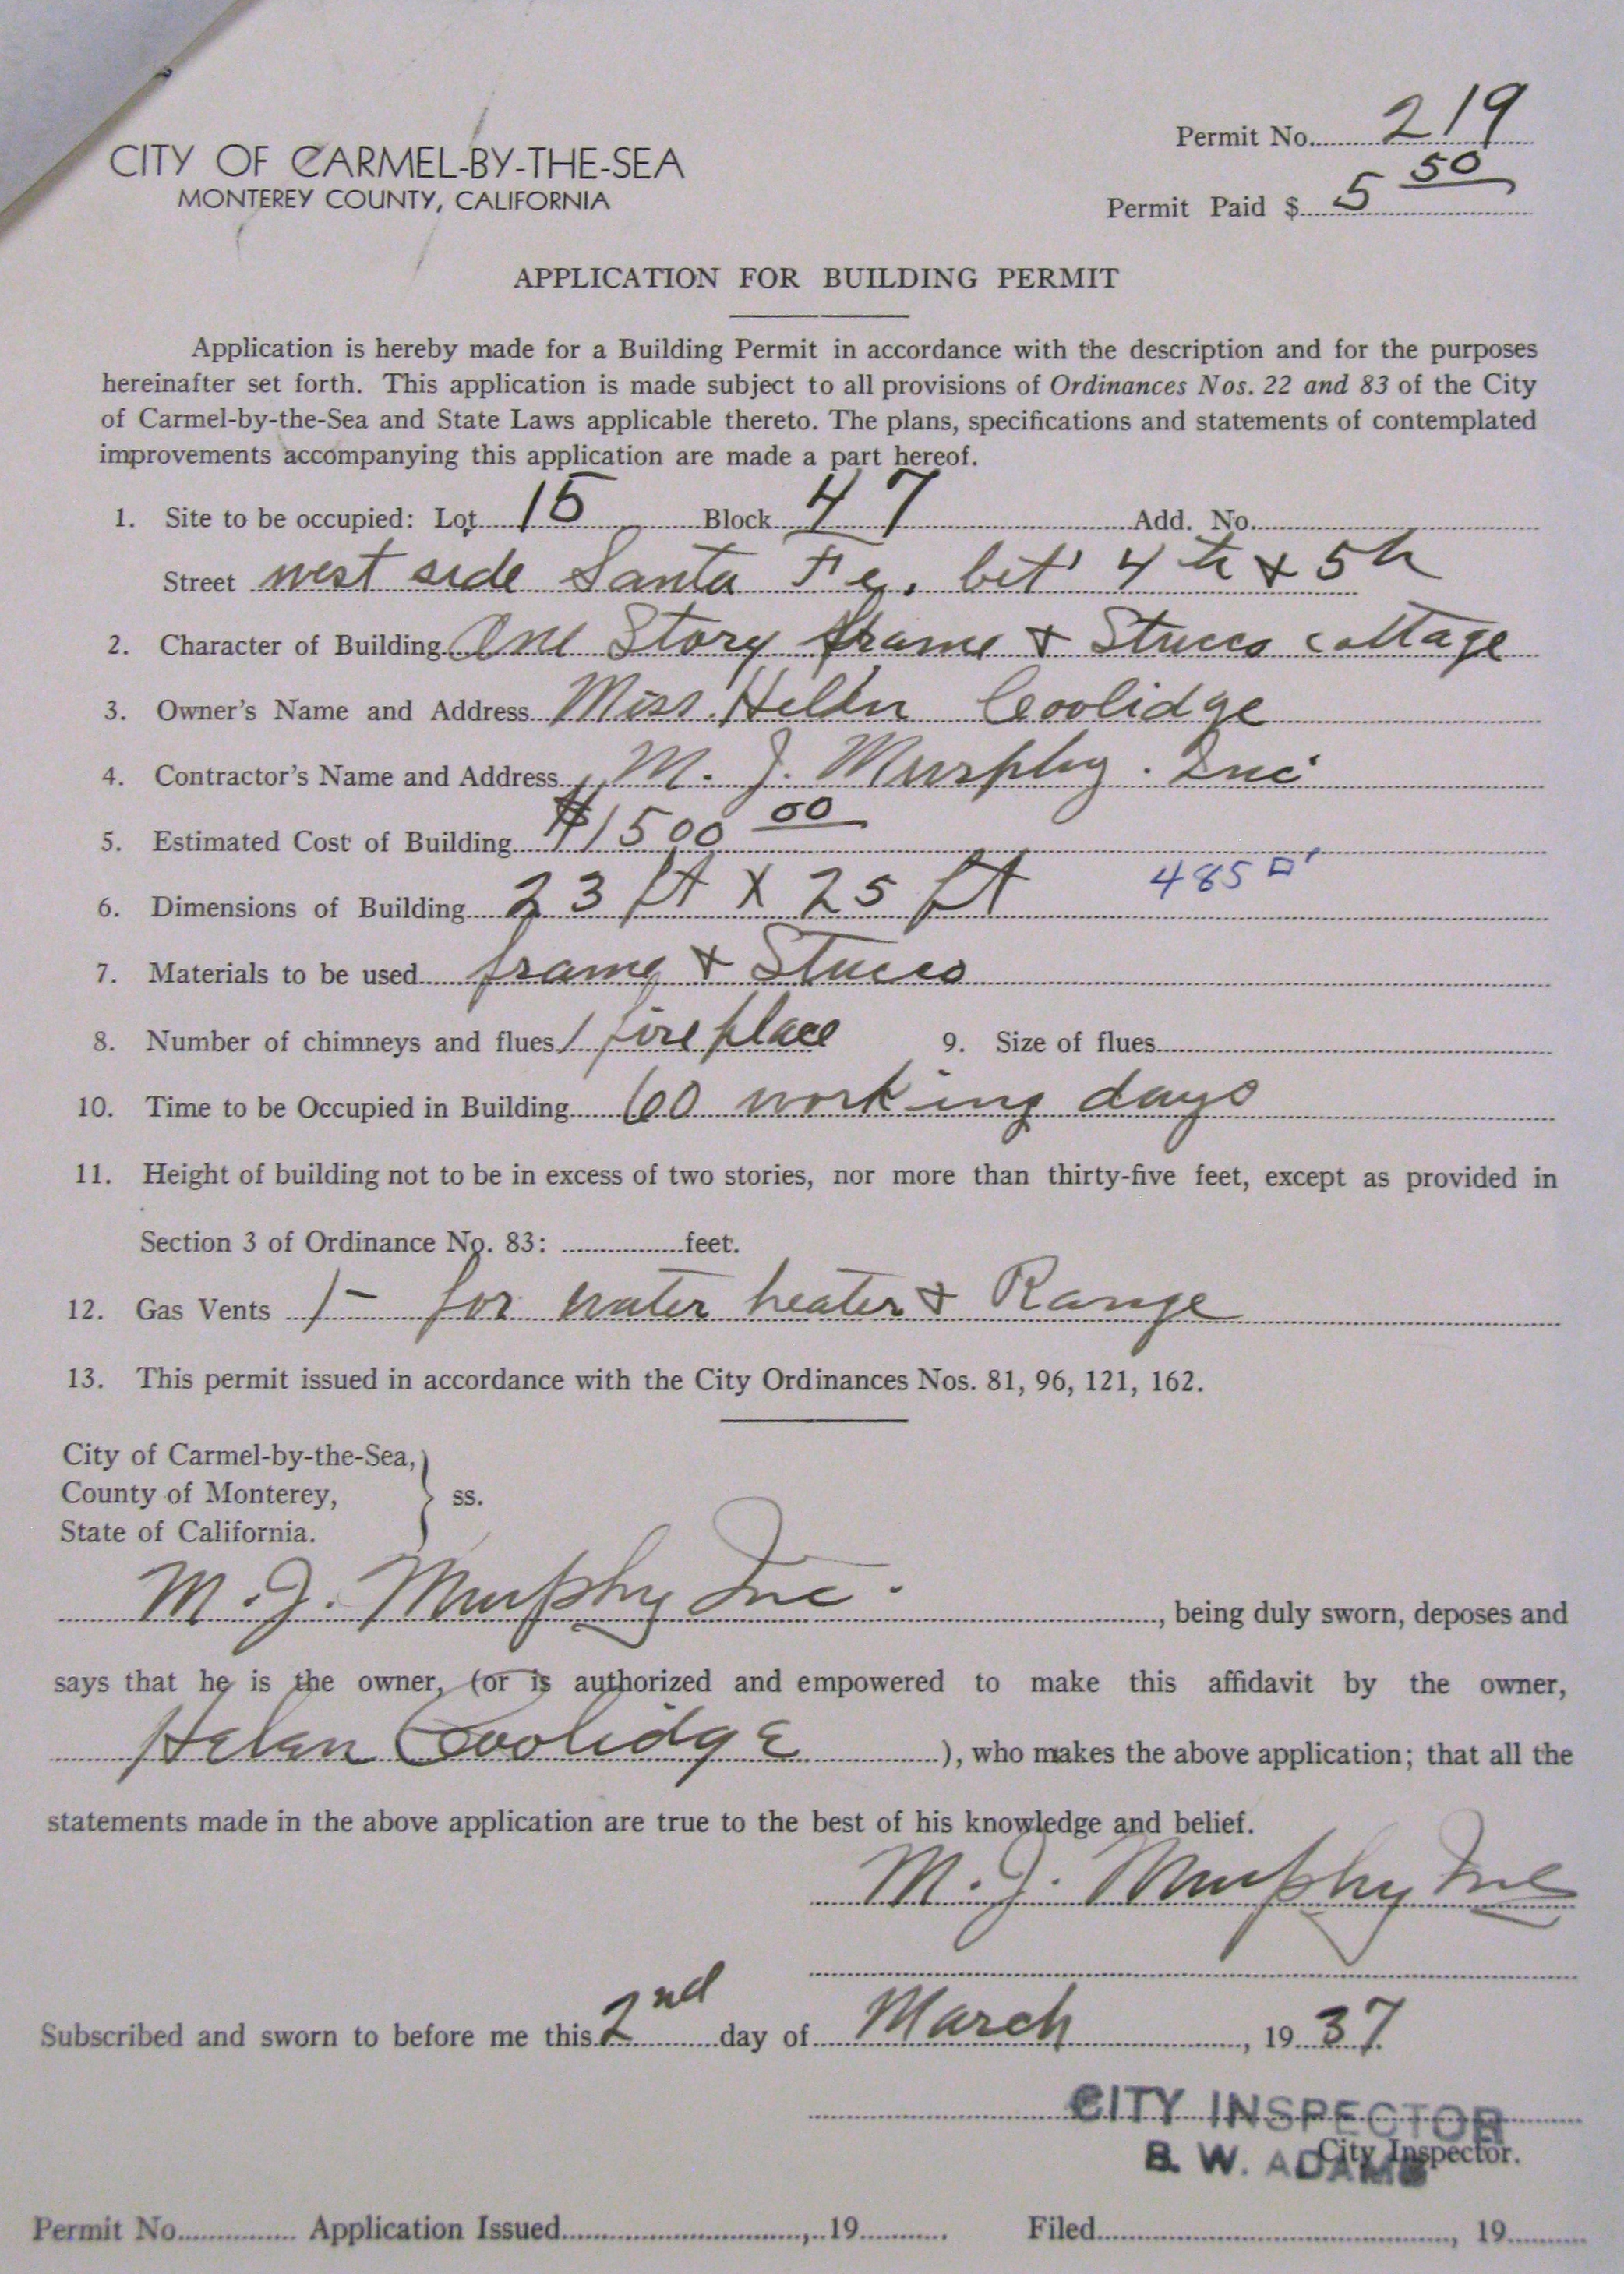 CITY OF CARMEL-BY-THE-SEA
MONTEREY COUNTY, CALIFORNIA
Permit No. 219
Permit Paid $ 5 50
APPLICATION FOR BUILDING PERMIT
Application is hereby made for a Building Permit in accordance with the description and for the purposes
hereinafter set forth. This application is made subject to all provisions of Ordinances Nos. 22 and 83 of the City
of Carmel-by-the-Sea and State Laws applicable thereto. The plans, specifications and statements of contemplated
improvements accompanying this application are made a part hereof.
1. Site to be occupied: Lot 15 Block 47 Add. No.
Street west side Santa Fe. bet' 4th & 5h
2. Character of Building One Story frame & Stucco cottage
3. Owner's Name and Address Miss. Hellen Coolidge
4. Contractor's Name and Address M. J. Murphy. Inc
5. Estimated Cost of Building $1500 00
6. Dimensions of Building 23 ft X 25 ft 485 □'
7. Materials to be used frame & Stucco
8. Number of chimneys and flues 1 fireplace 9. Size of flues
10. Time to be Occupied in Building 60 working days
11. Height of building not to be in excess of two stories, nor more than thirty-five feet, except as provided in
Section 3 of Ordinance No. 83: feet.
12. Gas Vents 1- for water heater & Range
13. This permit issued in accordance with the City Ordinances Nos. 81, 96, 121, 162.
City of Carmel-by-the-Sea,
County of Monterey, } ss.
State of California.
M. J. Murphy Inc. , being duly sworn, deposes and
says that he is the owner, (or is authorized and empowered to make this affidavit by the owner,
Helen Coolidge ), who makes the above application; that all the
statements made in the above application are true to the best of his knowledge and belief.
M. J. Murphy Inc
Subscribed and sworn to before me this 2nd day of March , 19 37.
CITY INSPECTOR
B. W. ADAMS
City Inspector.
Permit No. Application Issued , 19 . Filed , 19